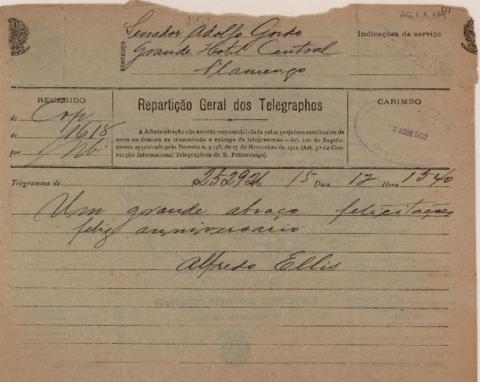 Senador Adolfo Gordo
Grande Hotel Central
Flamengo
Indicações de serviço
RECEBIDO
de Cop
de 1618
por
Repartição Geral dos Telegraphos
A Administração não aceita responsabilidade pelos prejuizos resultantes de
erros ou demora na transmissão e entrega de telegrammas—Art. 100 do Regula-
mento approvado pelo Decreto n. 9.148, de 27 de Novembro de 1911. (Art. 3º da Con-
venção Internacional Telegraphica de S. Petersburgo).
CARIMBO
AGO 1917
Telegramma de Nº 15 Data 12 Hora 1540
Um grande abraço felicitações
feliz anniversario
Alfredo Ellis